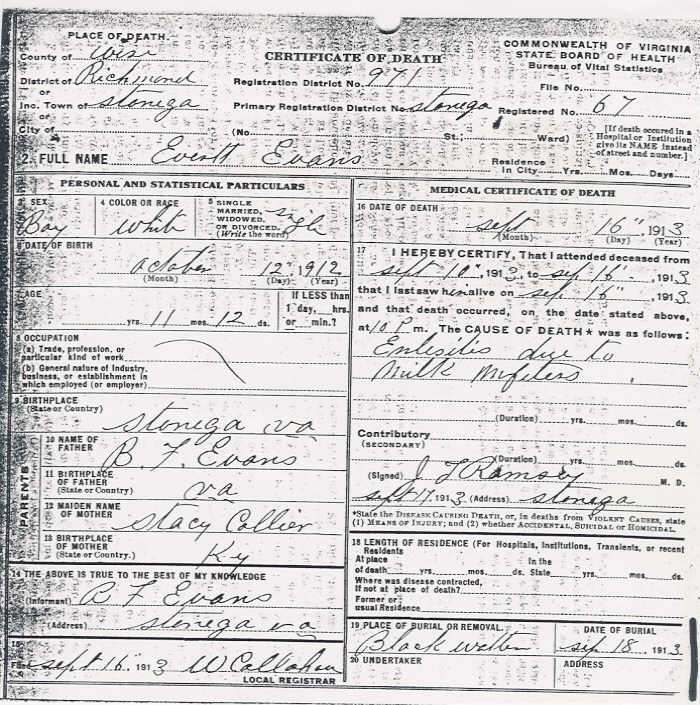 PLACE OF DEATH.
County of Wise
District of Richmond
or
Inc. Town of Stonega
or
City of
CERTIFICATE OF DEATH
Registration District No. 971
Primary Registration District No. Stonega
(No. St.; Ward)
COMMONWEALTH OF VIRGINIA
STATE BOARD OF HEALTH
Bureau of Vital Statistics
File No.
Registered No. 67
[If death occured in a
Hospital or Institution
give its NAME instead
of street and number.]
2. FULL NAME Everett Evans
Residence
In City Yrs. Mos. Days
PERSONAL AND STATISTICAL PARTICULARS
3 SEX
Boy
4 COLOR OR RACE
White
5 SINGLE
MARRIED,
WIDOWED,
OR DIVORCED.
(Write the word)
Single
6 DATE OF BIRTH
October 12" 1912
(Month) (Day) (Year)
7 AGE
yrs. 11 mos. 12 ds.
If LESS than
1 day, hrs.
or min.?
8 OCCUPATION
(a) Trade, profession, or
particular kind of work
(b) General nature of Industry,
business, or establishment in
which employed (or employer)
9 BIRTHPLACE
(State or Country)
Stonega va
PARENTS
10 NAME OF
FATHER
B. F. Evans
11 BIRTHPLACE
OF FATHER
(State or Country)
va
12 MAIDEN NAME
OF MOTHER
Stacy Collier
13 BIRTHPLACE
OF MOTHER
(State or Country.)
Ky
14 THE ABOVE IS TRUE TO THE BEST OF MY KNOWLEDGE
(Informant) B F Evans
(Address) Stonega va
15
Filed Sept 16 1913 W Callahan
LOCAL REGISTRAR
MEDICAL CERTIFICATE OF DEATH
16 DATE OF DEATH
Sept 16" 1913
(Month) (Day) (Year)
17 I HEREBY CERTIFY, That I attended deceased from
Sept 10", 1913, to Sep. 16", 1913
that I last saw him alive on Sep. 16", 1913
and that death occurred, on the date stated above,
at 10 P. m. The CAUSE OF DEATH* was as follows:
due to
Milk
(Duration) yrs. mos. ds.
Contributory
(SECONDARY)
(Duration) yrs. mos. ds.
(Signed) J L Ramsey M. D.
Sept 17, 1913 (Address) Stonega
*State the DISEASE CAUSING DEATH, or, in deaths from VIOLENT CAUSES, state
(1) MEANS OF INJURY; and (2) whether ACCIDENTAL, SUICIDAL or HOMICIDAL.
18 LENGTH OF RESIDENCE (For Hospitals, Institutions, Transients, or recent
Residents
At place In the
of death yrs. mos. ds. State yrs. mos. ds.
Where was disease contracted,
If not at place of death?
Former or
usual Residence
19 PLACE OF BURIAL OR REMOVAL.
Black
DATE OF BURIAL
Sep 18, 1913
20 UNDERTAKER
ADDRESS